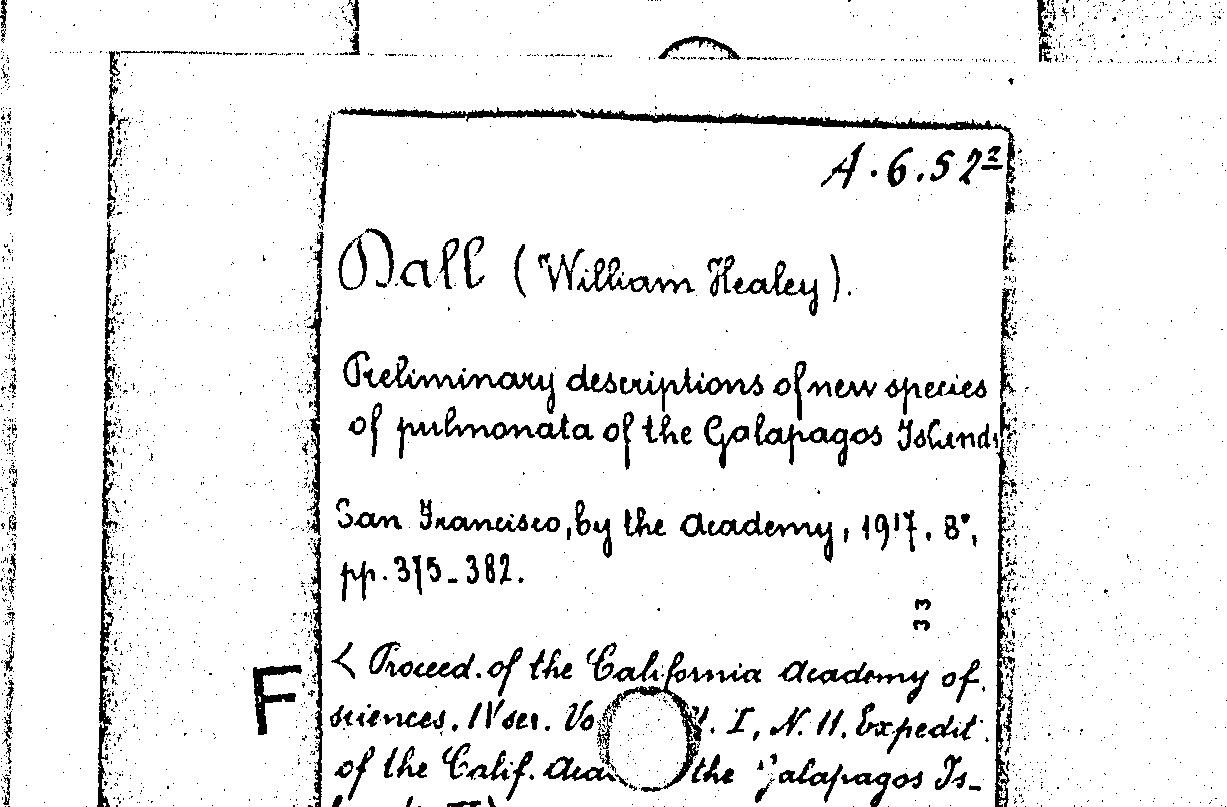 A.6.52²
Dall (William Healey).
Preliminary descriptions of new species
of pulmonata of the Galapagos Islands
San Francisco, by the Academy, 1917. 8°,
pp. 375-382.
33
< Proceed. of the California Academy of
F
sciences. IV ser. Vo I, N. 11. Expedit.
of the Calif. the Galapagos Is-